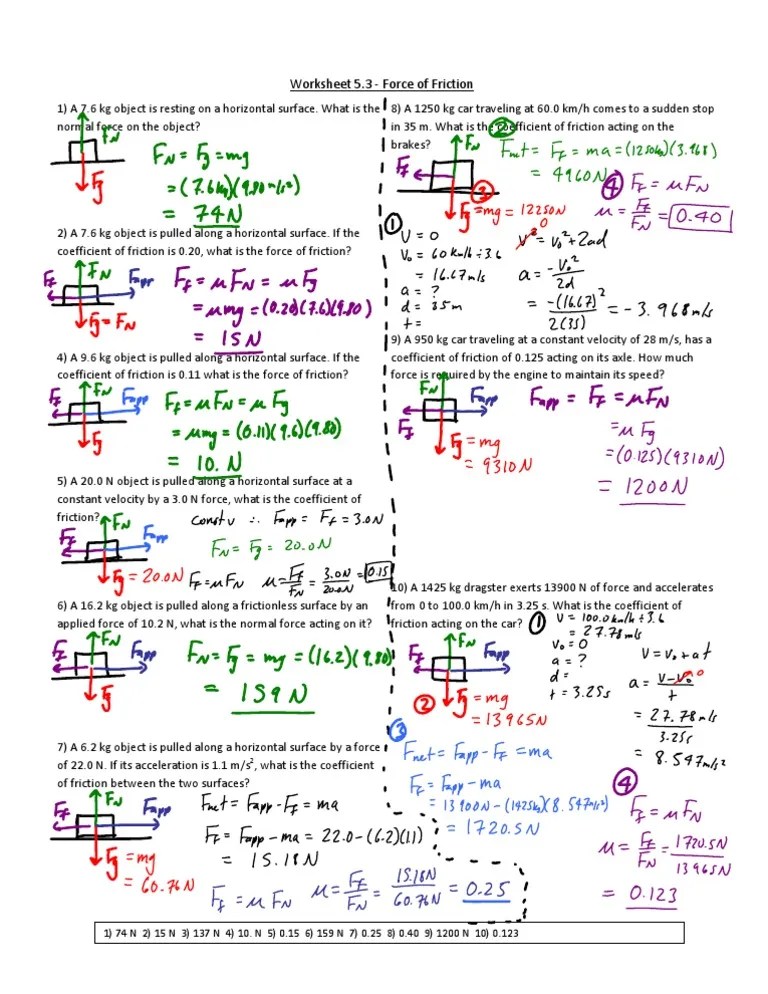 Worksheet 5.3 - Force of Friction
1) A 7.6 kg object is resting on a horizontal surface. What is the
normal force on the object?
FN
Fg
FN = Fg = mg
= (7.6kg)(9.80m/s²)
= 74N
2) A 7.6 kg object is pulled along a horizontal surface. If the
coefficient of friction is 0.20, what is the force of friction?
Ff
FN
Fapp
Fg = FN
Ff = μFN = μFg
= μmg = (0.20)(7.6)(9.80)
= 15N
4) A 9.6 kg object is pulled along a horizontal surface. If the
coefficient of friction is 0.11 what is the force of friction?
Ff
FN
Fapp
Fg
Ff = μFN = μFg
= μmg = (0.11)(9.6)(9.80)
= 10. N
5) A 20.0 N object is pulled along a horizontal surface at a
constant velocity by a 3.0 N force, what is the coefficient of
friction?
const v ∴ Fapp = Ff = 3.0N
Ff
FN
Fapp
FN = Fg = 20.0N
Fg = 20.0N
Ff = μFN μ = Ff/FN = 3.0N/20.0N = 0.15
6) A 16.2 kg object is pulled along a frictionless surface by an
applied force of 10.2 N, what is the normal force acting on it?
Ff
FN
Fapp
Fg
FN = Fg = mg = (16.2)(9.80)
= 159N
7) A 6.2 kg object is pulled along a horizontal surface by a force
of 22.0 N. If its acceleration is 1.1 m/s², what is the coefficient
of friction between the two surfaces?
Ff
FN
Fapp
Fg = mg
= 60.76N
Fnet = Fapp - Ff = ma
Ff = Fapp - ma = 22.0 - (6.2)(1.1)
= 15.18N
Ff = μFN μ = Ff/FN = 15.18N/60.76N = 0.25
8) A 1250 kg car traveling at 60.0 km/h comes to a sudden stop
in 35 m. What is the coefficient of friction acting on the
brakes?
Ff
FN
② Fnet = Ff = ma = (1250kg)(3.968)
= 4960N
③ Fg = mg = 12250N
④ Ff = μFN
μ = Ff/FN = 0.40
①
V = 0
V₀ = 60 km/h ÷ 3.6
= 16.67m/s
a = ?
d = 35m
t =
V² = V₀² + 2ad
0
a = -V₀²/2d
= -(16.67)²/2(35) = -3.968m/s
9) A 950 kg car traveling at a constant velocity of 28 m/s, has a
coefficient of friction of 0.125 acting on its axle. How much
force is required by the engine to maintain its speed?
FN
Fapp
Ff
Fg = mg
= 9310N
Fapp = Ff = μFN
= μFg
= (0.125)(9310N)
= 1200N
10) A 1425 kg dragster exerts 13900 N of force and accelerates
from 0 to 100.0 km/h in 3.25 s. What is the coefficient of
friction acting on the car?
①
V = 100.0km/h ÷ 3.6
= 27.78m/s
V₀ = 0
a = ?
d =
t = 3.25s
V = V₀ + at
a = V-V₀/t
0
= 27.78m/s/3.25s
= 8.547m/s²
Ff
FN
Fapp
② Fg = mg
= 13965N
③
Fnet = Fapp - Ff = ma
Ff = Fapp - ma
= 13900N - (1425kg)(8.547m/s²)
= 1720.5N
④
Ff = μFN
μ = Ff/FN = 1720.5N/13965N
= 0.123
1) 74 N 2) 15 N 3) 137 N 4) 10. N 5) 0.15 6) 159 N 7) 0.25 8) 0.40 9) 1200 N 10) 0.123